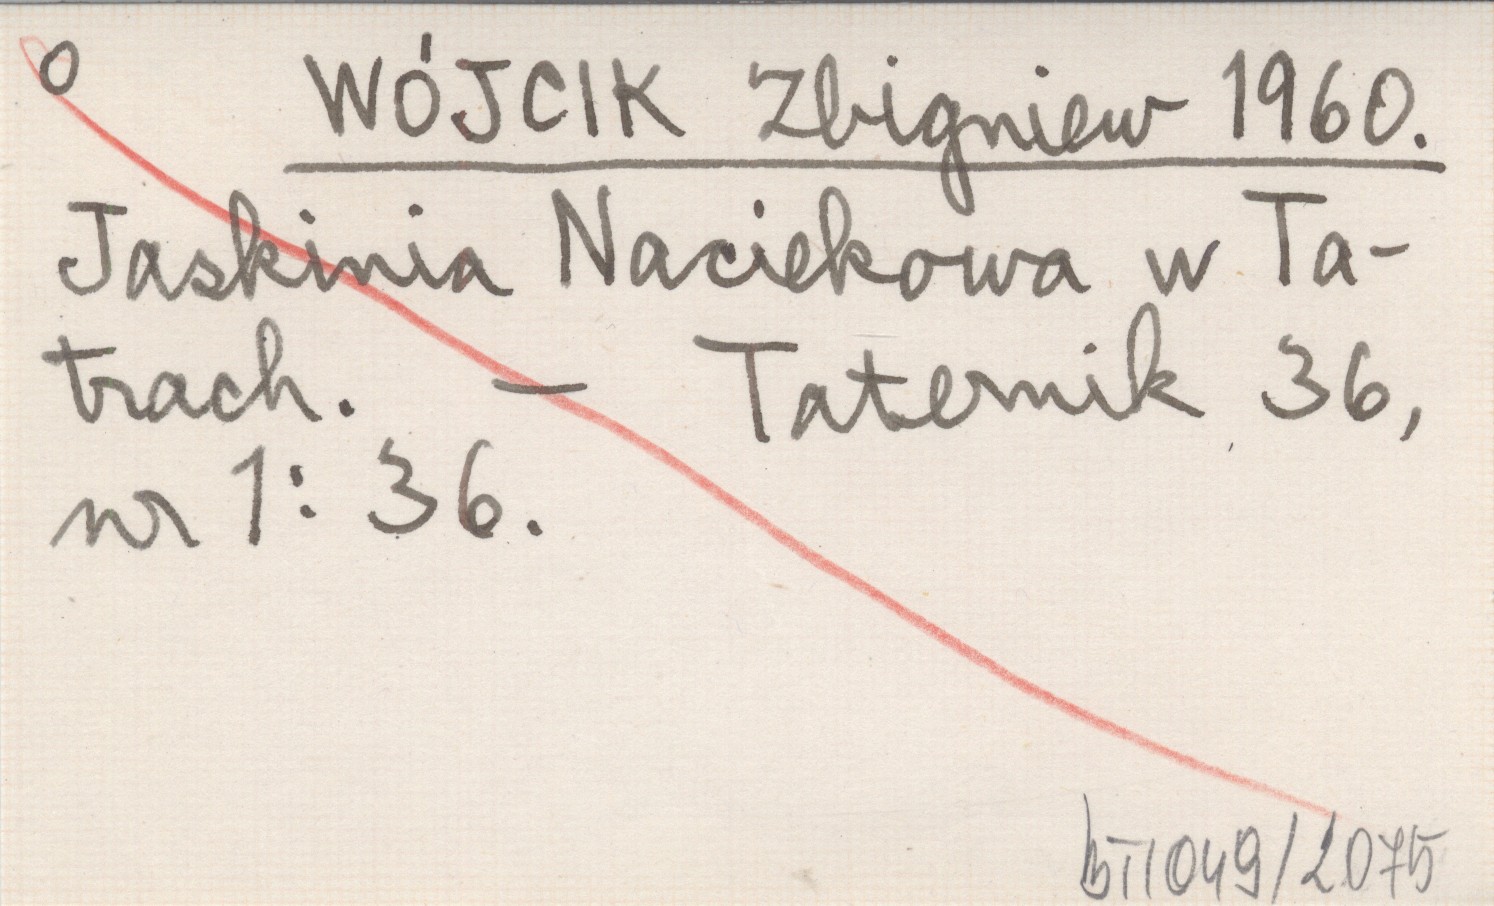 O WÓJCIK Zbigniew 1960.
Jaskinia Naciekowa w Ta-
trach. — Taternik 36,
nr 1: 36.
bTI049/2075